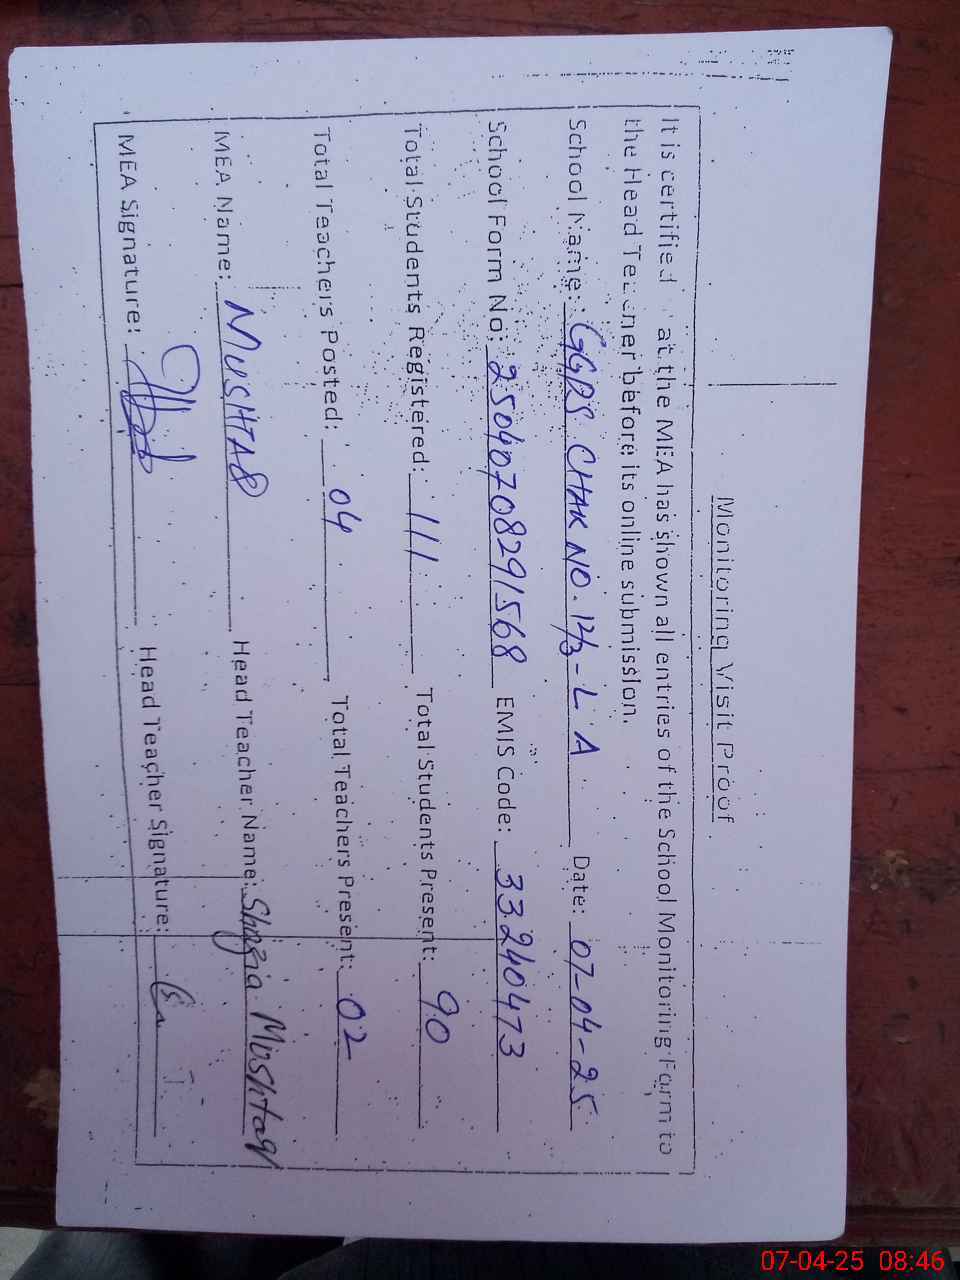 Monitoring Visit Proof
It is certified at the MEA has shown all entries of the School Monitoring Form to
the Head Teacher before its online submission.
School Name: GGPS CHAK NO. 12/3-L A Date: 07-04-25
School Form No: 250407082915 68 EMIS Code: 33240473
Total Students Registered: 111 Total Students Present: 90
Total Teachers Posted: 04 Total Teachers Present: 02
MEA Name: MUSHTAQ Head Teacher Name: Shazia Mushtaq
MEA Signature: Head Teacher Signature:
07-04-25 08:46